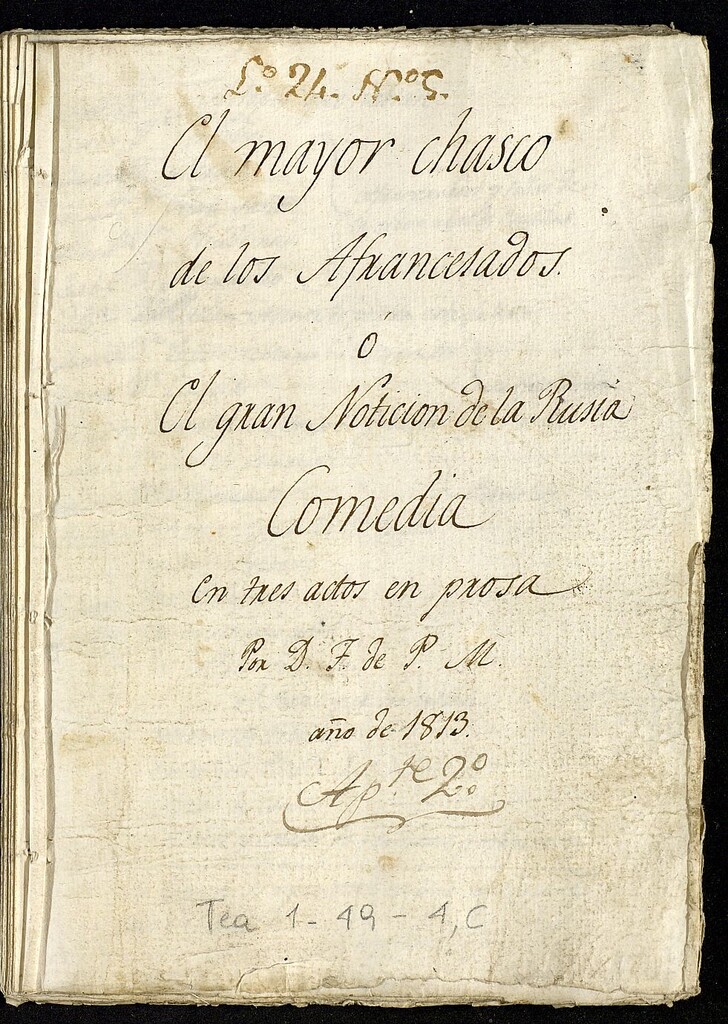 L.º 24. N.º 5.
El mayor chasco
de los Afrancesados.
ó
El gran Noticion de la Rusia
Comedia
En tres actos en prosa
Por D. F. de P. M.
año de 1813.
Ap.te 2.º
Tea 1-49-4, C